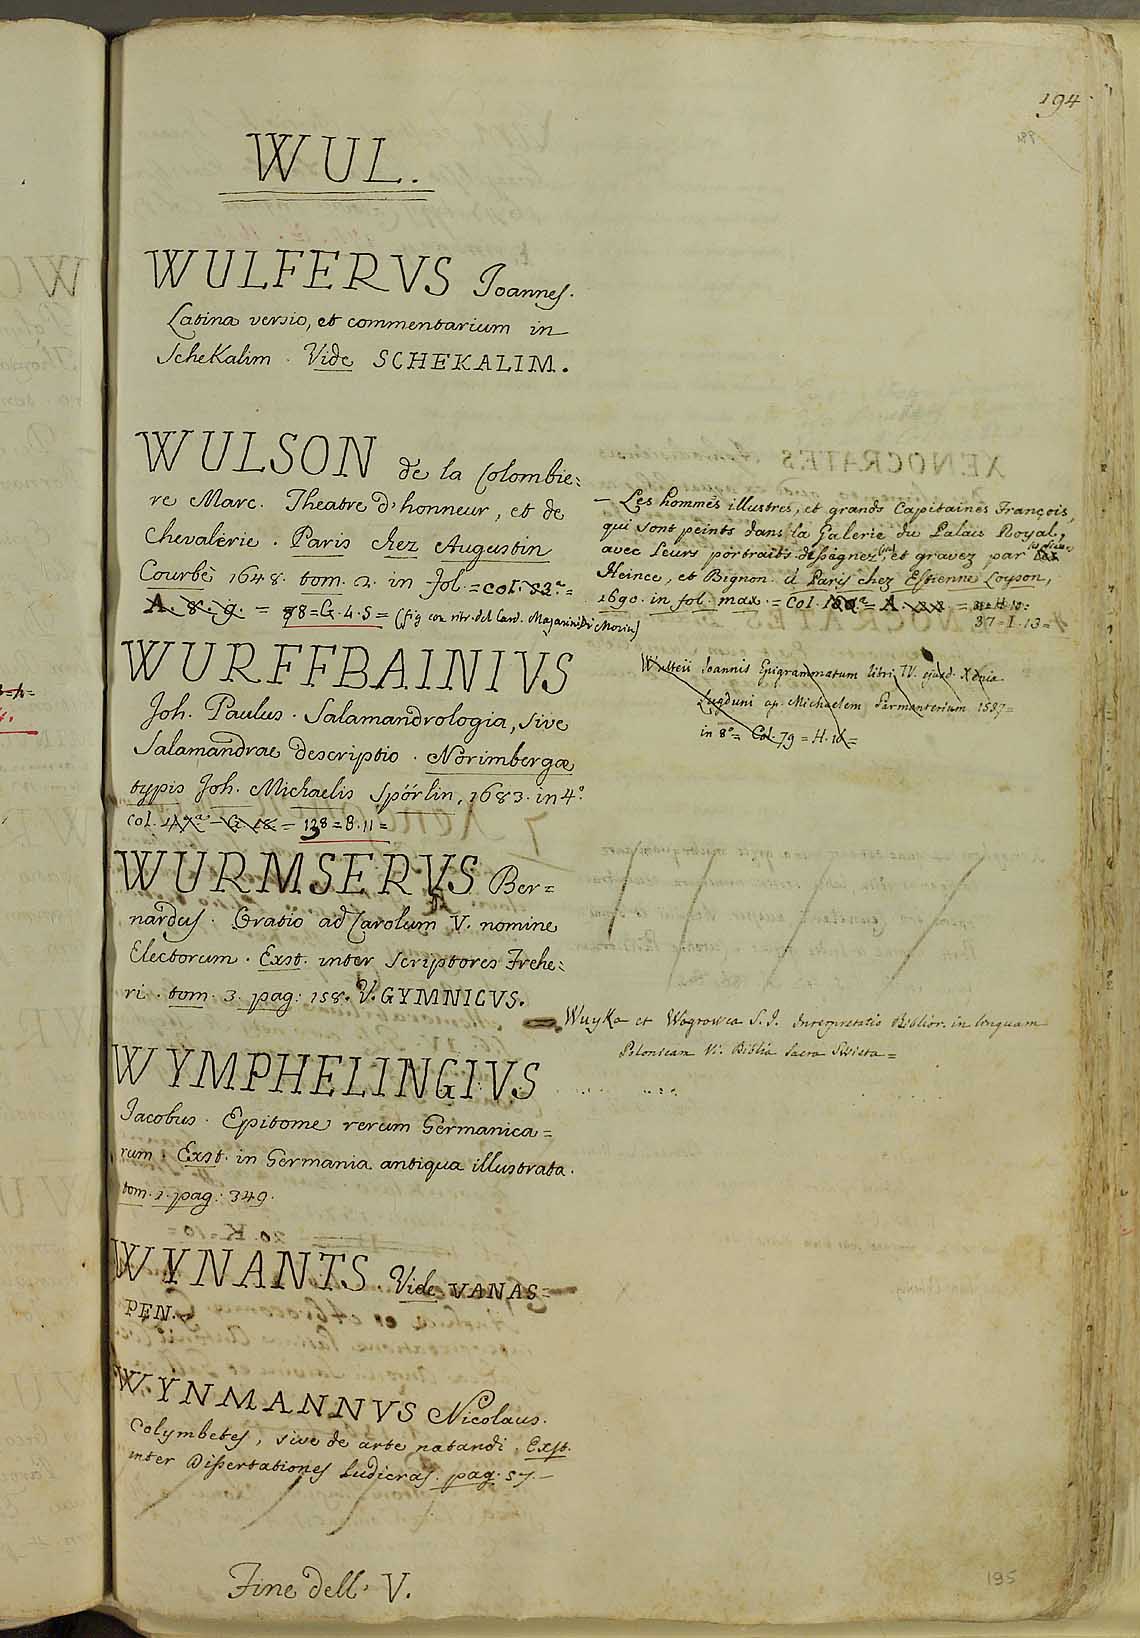 194
WUL.
WULFERVS Joannes.
Latina versio, et commentarium in
Schekalim. Vide SCHEKALIM.
WULSON de la Colombie=
re Marc. Theatre d'honneur, et de
Chevalerie. Paris chez Augustin
Courbè 1648. tom. 2. in fol. = col. 82.ª =
A. 8. 9. = 88 = G. 4. 5 = (fig con ritr. del Card. Mazarini di Morin)
WURFFBAINIVS
Joh. Paulus. Salamandrologia, sive
Salamandrae descriptio. Norimbergæ
typis Joh. Michaelis Spörlin, 1683. in 4.º
col. = 138 = B. 11 =
WURMSERVS Ber=
nardus. Oratio ad Carolum V. nomine
Electorum. Exst. inter Scriptores Frehe=
ri. tom. 3. pag: 158. V. GYMNICVS.
WYMPHELINGIVS
Jacobus. Epitome rerum Germanica=
rum. Exst. in Germania antiqua illustrata.
tom. 1. pag: 349.
WYNANTS. Vide VANAS=
PEN.
WYNMANNVS Nicolaus.
Colymbetes, sive de arte natandi. Exst.
inter Dissertationes Ludicras. pag. 57.
Fine dell' V.
— Les hommes illustres, et grands Capitaines François,
qui sont peints dans la Galerie du Palais Royal,
avec leurs portraits dessignez, et gravez par
Heince, et Bignon. à Paris chez Estienne Loyson,
1690. in fol. max. = Col. = A. = H. 10 =
37 = I. 13 =
Wulteii Joannis Epigrammatum libri IV. ejusd. Xenia
Lugduni ap. Michaelem Parmanterium 1537 =
in 8º = Col. 79 = H. =
Wuyka et Wagrowca S. J. Interpretatio Biblior. in linguam
Polonicam V. Biblia Sacra Swieta =
195